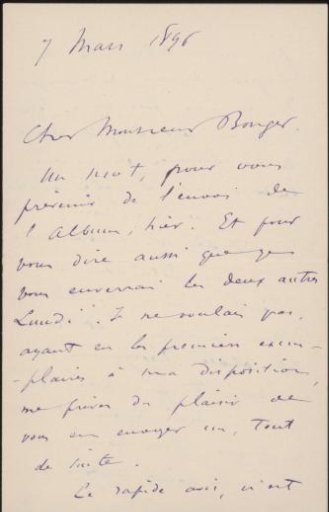 7 Mars 1896
Cher Monsieur Bonger.
Un mot, pour vous
prévenir de l'envoi de
l'Album, hier. Et pour
vous dire aussi que je
vous enverrai les deux autres
Lundi. Je ne voulais pas,
ayant eu les premiers exem-
-plaires à ma disposition,
me priver du plaisir de
vous en envoyer un, tout
de suite.
Ce rapide avis, c'est